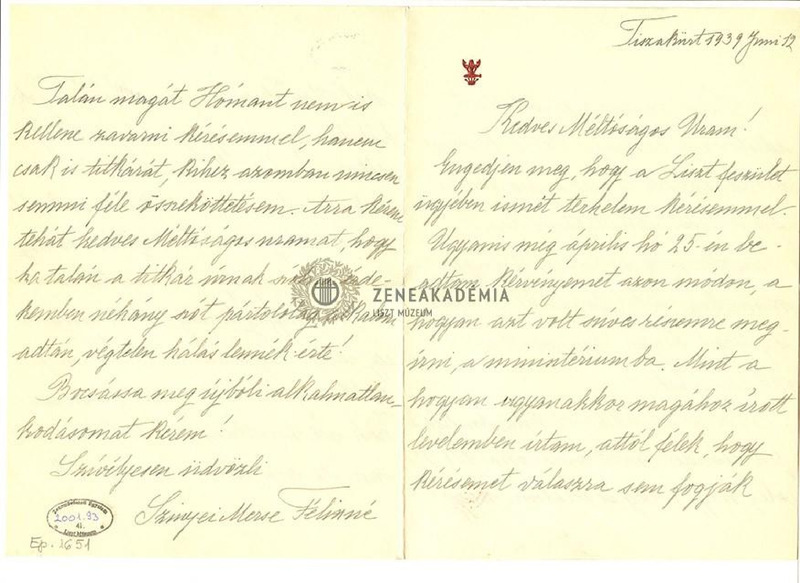 Tiszakürt 1939 Juni 12
Kedves Méltóságos Uram!
Engedjen meg, hogy a Liszt feszület
ügyében ismét terhelem kérésemmel.
Ugyanis még április hó 25-én be-
adtam kérvényemet azon módon, a
hogyan azt volt szíves részemre meg-
irni, a minintériumba. Mint a
hogyan ugyanakkor magához írott
levelemben írtam, attól félek, hogy
kérésemet válaszra sem fogják
Talán magát Hómant nem is
kellene zavarni kérésemmel, hanem
csak is titkárát, kihez azomban nincsen
semmi féle összeköttetésem. Arra kérem
tehát kedves Méltóságos uramat, hogy
ha talán a titkár úrnak
kemben néhány szót
adtán, végtelen hálás lennék érte!
Bocsássa meg újbóli alkalmatlan-
kodásomat kérem!
Szívélyesen üdvözli
Szinyei Merse Félixné
ZENEAKADÉMIA
LISZT MÚZEUM
2001.93
Ep. 1651